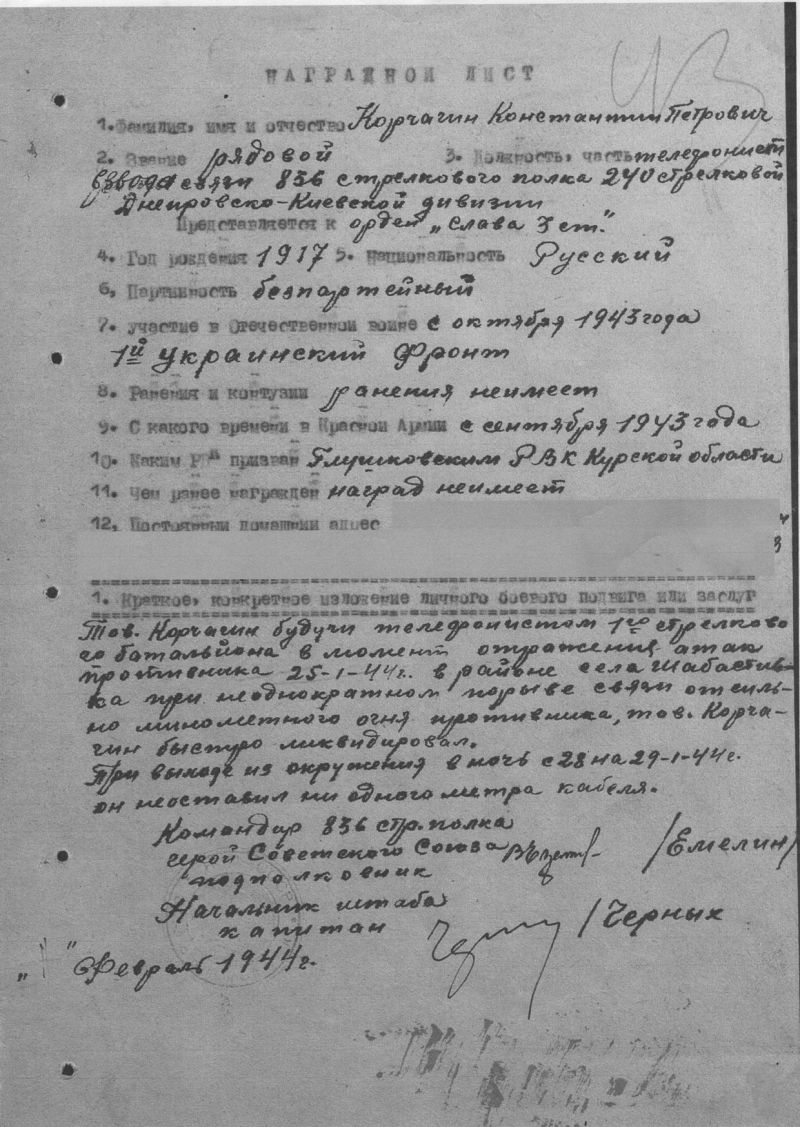 НАГРАДНОЙ ЛИСТ
1.Фамилия, имя и отчество Корчагин Константин Петрович
2. Звание рядовой 3. Должность, часть телефонист
взвода связи 836 стрелкового полка 240 стрелковой
Днепровско-Киевской дивизии
Представляется к орден „Слава 3 ст."
4. Год рождения 1917 5. Национальность Русский
6, Партийность безпартейный
7. участие в Отечественной войне с октября 1943 года
1й украинский Фронт
8. Ранения и контузии ранения неимеет
9. С какого времени в Красной Армии с сентября 1943 года
10. Каким РВК призван Глушковским РВК Курской области
11. Чем ранее награжден наград неимеет
12, Постоянный домашний адрес
1. Краткое, конкретное изложение личного боевого подвига или заслуг
Тов. Корчагин будучи телефонистом 1го стрелково
го батальйона в момент отражения атак
противника 25-1-44г. в районе села Шабастив-
ка при неоднократном порыве связи от силь-
но минометного огня противника, тов. Корча-
гин быстро ликвидировал.
При выходе из окружения в ночь с 28 на 29-1-44г.
он неоставил ни одного метра кабеля.
Командир 836 стр. полка
герой Советского Союза /Емелин/
подполковник
Начальник штаба /Черных
капитан
„ " Февраль 1944г.